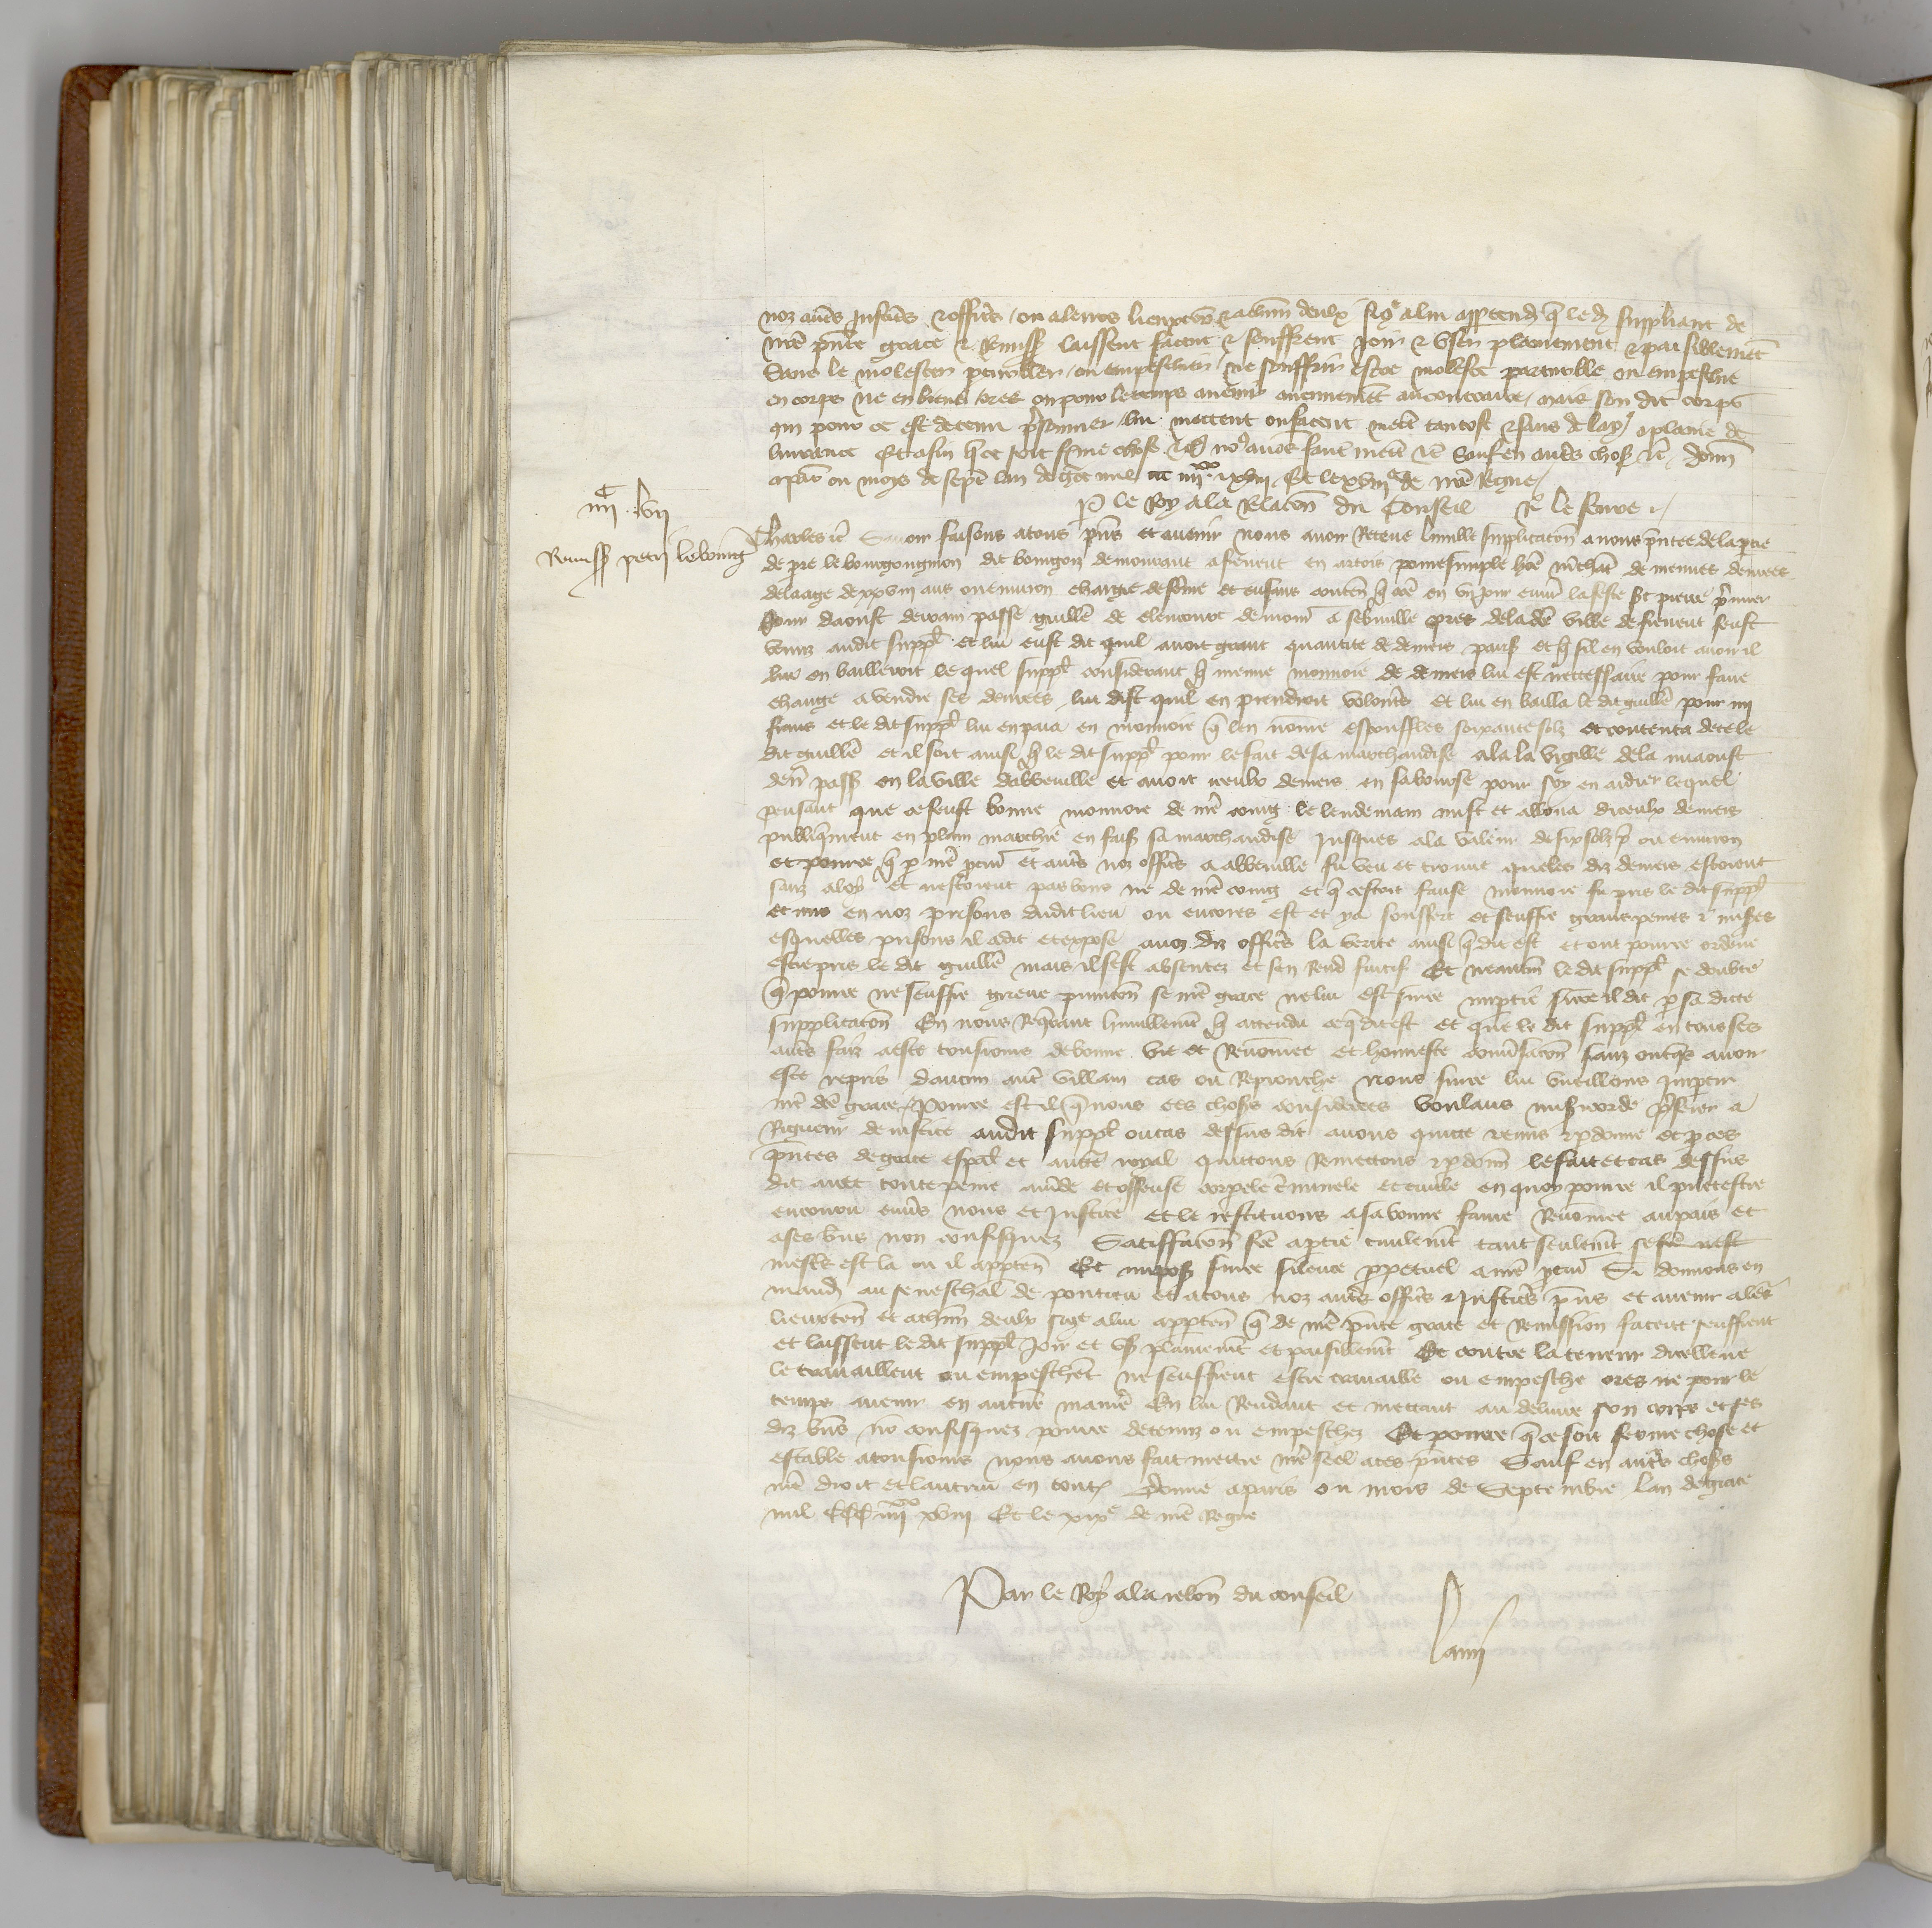 noz autres justiciers & officiers ou a leurs lieuxtenans & a chacun deulx si que a lui appartendra que le dit suppliant de
nostre presente grace & Remission laissent facent & seuffrent joir & user plainement & paisiblement
Sans le molester ou empeschier ne souffrir estre moleste ou empeschie
en corps ne en biens ores ou pour le temps avenir aucunement au contraire mais son dit corps
qui pour ce est detenu prisonnier lui mettent ou facent mettre tantost & sans delay a plaine de
livrance Et afin que ce soit ferme chose &c nous avons fait mettre &c Sauf en autres choses &c Donne
a paris ou mois de septembre lan de grace mil ccc iiiixx xviii Et le xviiie de nostre Regne
P le Roy a la Relacion du Conseil Le fevre
iiiic lvii
Remissio petri le bourg
Charles &c Savoir faisons a tous presens et avenir nous avoir Receue lumble supplicacion a nous presentee de la partie
de pierre le bourgongnon dit bourgon demourant a fievent en artois povre simple homme marchant de menues denrees
de laage de xxviii ans ou environ chargie de femme et enfans contenant que comme en un jour environ la feste st pierre premier
Jour daoust derrain passe guillemin de demourant a pres de la dicte ville de fievent feust
venuz audit suppliant et lui eust dit quil avoit grant quantite de deniers parisis et que sil en vouloit avoir il
lui en bailleroit le quel suppliant considerant que menue monnoie de deniers lui est necessaire pour faire
change a vendre ses denrees lui dist quil en prendroit volentiers et lui en bailla le dit guillemin pour iiii
frans et le dit suppliant lui en paia en monnoie que len nomme escouffles soixante solz et contenta de ce le
dit guillemin et il soit ainsi que le dit suppliant pour le fait de sa marchandise ala la vigille de la miaoust
derrenier passe en la ville dabbeville et avoit iceulx deniers en sa bourse pour soy en aidier lequel
pensant que ce feust bonne monnoie de nostre coing le lendemain mist et alloua diceulx deniers
publiquement en plain marchie en faisant sa marchandise jusques a la valeur de six solz parisis ou environ
et pource que par nostre procureur et autres noz officiers a abbeville fu veu et trouve que les diz deniers estoient
sanz aloy et nestoient pas bons ne de nostre coing et que cestoit fausse monnoie fu pris le dit suppliant
et mis en noz prisons dudit lieu ou encores est et y a souffert et seuffre grans peines & miseres
esquelles prisons il a dit et expose a noz diz officiers la verite ainsi que dit est et ont pource ordene
estre pris le dit guillemin mais il sest absentez et sen rend fuitif Et neantmoins le dit suppliant se doubte
que pource ne seuffre grieve punicion se nostre grace ne lui est sur ce impartie si comme il dit par sa dicte
supplicacion En nous Requerant humblement que attendu ce que dit est et que le dit suppliant en tous ses
autres faiz a este tousjours de bonne vie et Renommee et honneste conversacion sanz oncques avoir
este repris daucun autre villain cas ou Reprouche nous sur ce lui vueillions impartir
nostre dicte grace Pource est il que nous ces choses considerees voulans misericorde preferer a
Rigueur de justice audit suppliant ou cas dessus dit avons quitte remis & pardonne et par ces
presentes de grace especial et auctorite royal quittons Remettons & pardonnons le fait et cas dessus
dit avec toute peine amende et offense corporele criminele et civile en quoy pource il puet estre
encouru envers nous et justice et le restituons a sa bonne fame Renommee au pais et
a ses biens non confisquez Satisfacion faicte a partie civilement tant seulement se faicte nest
mestier est la ou il appartendra Et imposons sur ce silence perpetuel a nostre procureur Si donnons en
mandement au seneschal de pontieu et a tous noz autres officiers & justiciers presens et avenir a leurs
lieuxtenans et a chacun deulx si que a lui appartendra que de nostre presente grace et Remission facent seuffrent
et laissent le dit suppliant joir et user plainement et paisiblement Et contre la teneur dicelle ne
le travaillent ou empeschent ne seuffrent estre travaille ou empesche ores ne pour le
temps avenir en aucune maniere En lui Rendant et mettant au delivre son corps et ses
diz biens non confisquez pource detenuz ou empeschez Et pource que ce soit ferme chose et
estable a tousjours nous avons fait mettre nostre seel a ces presentes Sauf en autres choses
nostre droit et lautrui en toutes Donne a paris ou mois de Septembre lan de grace
mil CCC iiiixx xviii Et le xixe de nostre Regne
Par le Roy a la relacion du conseil